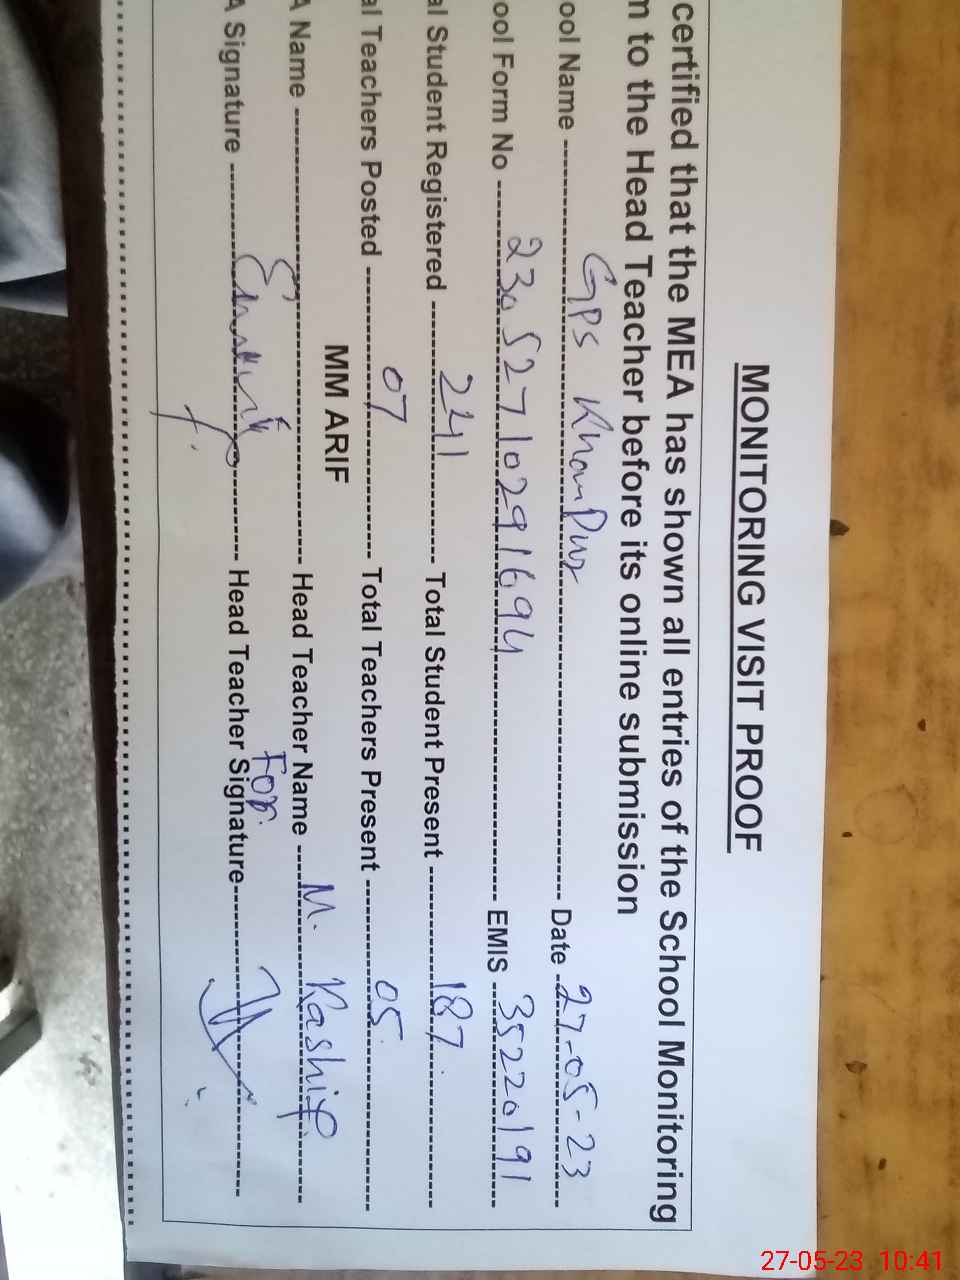 MONITORING VISIT PROOF
certified that the MEA has shown all entries of the School Monitoring
n to the Head Teacher before its online submission
ool Name GPS KhanPur Date 27-05-23
ool Form No 23052710291694 EMIS 35220191
al Student Registered 241 Total Student Present 187
al Teachers Posted 07 Total Teachers Present 05
MM ARIF
A Name Head Teacher Name M. Kashif
For.
A Signature Head Teacher Signature
27-05-23 10:41